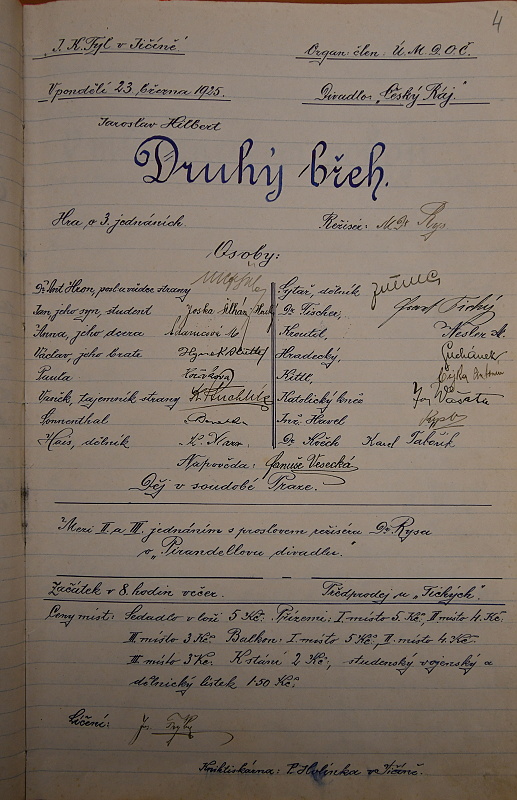 4
"J. K. Tyl v Jičíně"   Organ. člen: Ú.M.D.O.Č.
V pondělí 23. března 1925.   Divadlo: "Český Ráj."
Jaroslav Hilbert
Druhý břeh.
Hra o 3. jednáních.   Režisér: MDr Rys
Osoby:
Dr Vojt Hron, posl. a vůdce strany   Sytař, dělník
Jan, jeho syn, student   Dr Fischer,
Anna, jeho dcera   Adamcová M.   Kroutil,   Nesler A.
Václav, jeho bratr   Hradecký,
Pavla   Kittl,
Vaněk, tajemník strany   Katolický kněz
Sonnenthal   Inž. Havel
Hais, dělník   Dr Köch   Karel
Napověda: Januše Vesecká
Děj v soudobé Praze.
Mezi II. a III. jednáním s proslovem režiséra Dr Rysa
o "Pirandellovu divadlu."
Začátek v 8. hodin večer.   Předprodej u "Tichých".
Ceny míst: Sedadlo v loži 5 Kč. Přízemí: I. místo 5 Kč, II místo 4 Kč.
III místo 3 Kč. Balkon: I. místo 5 Kč, II. místo 4 Kč
III. místo 3 Kč. K stání 2 Kč, studenský vojenský a
dělnický lístek 1·50 Kč.
Líčení:
Knihtiskárna: P. Holinka v Jičíně.